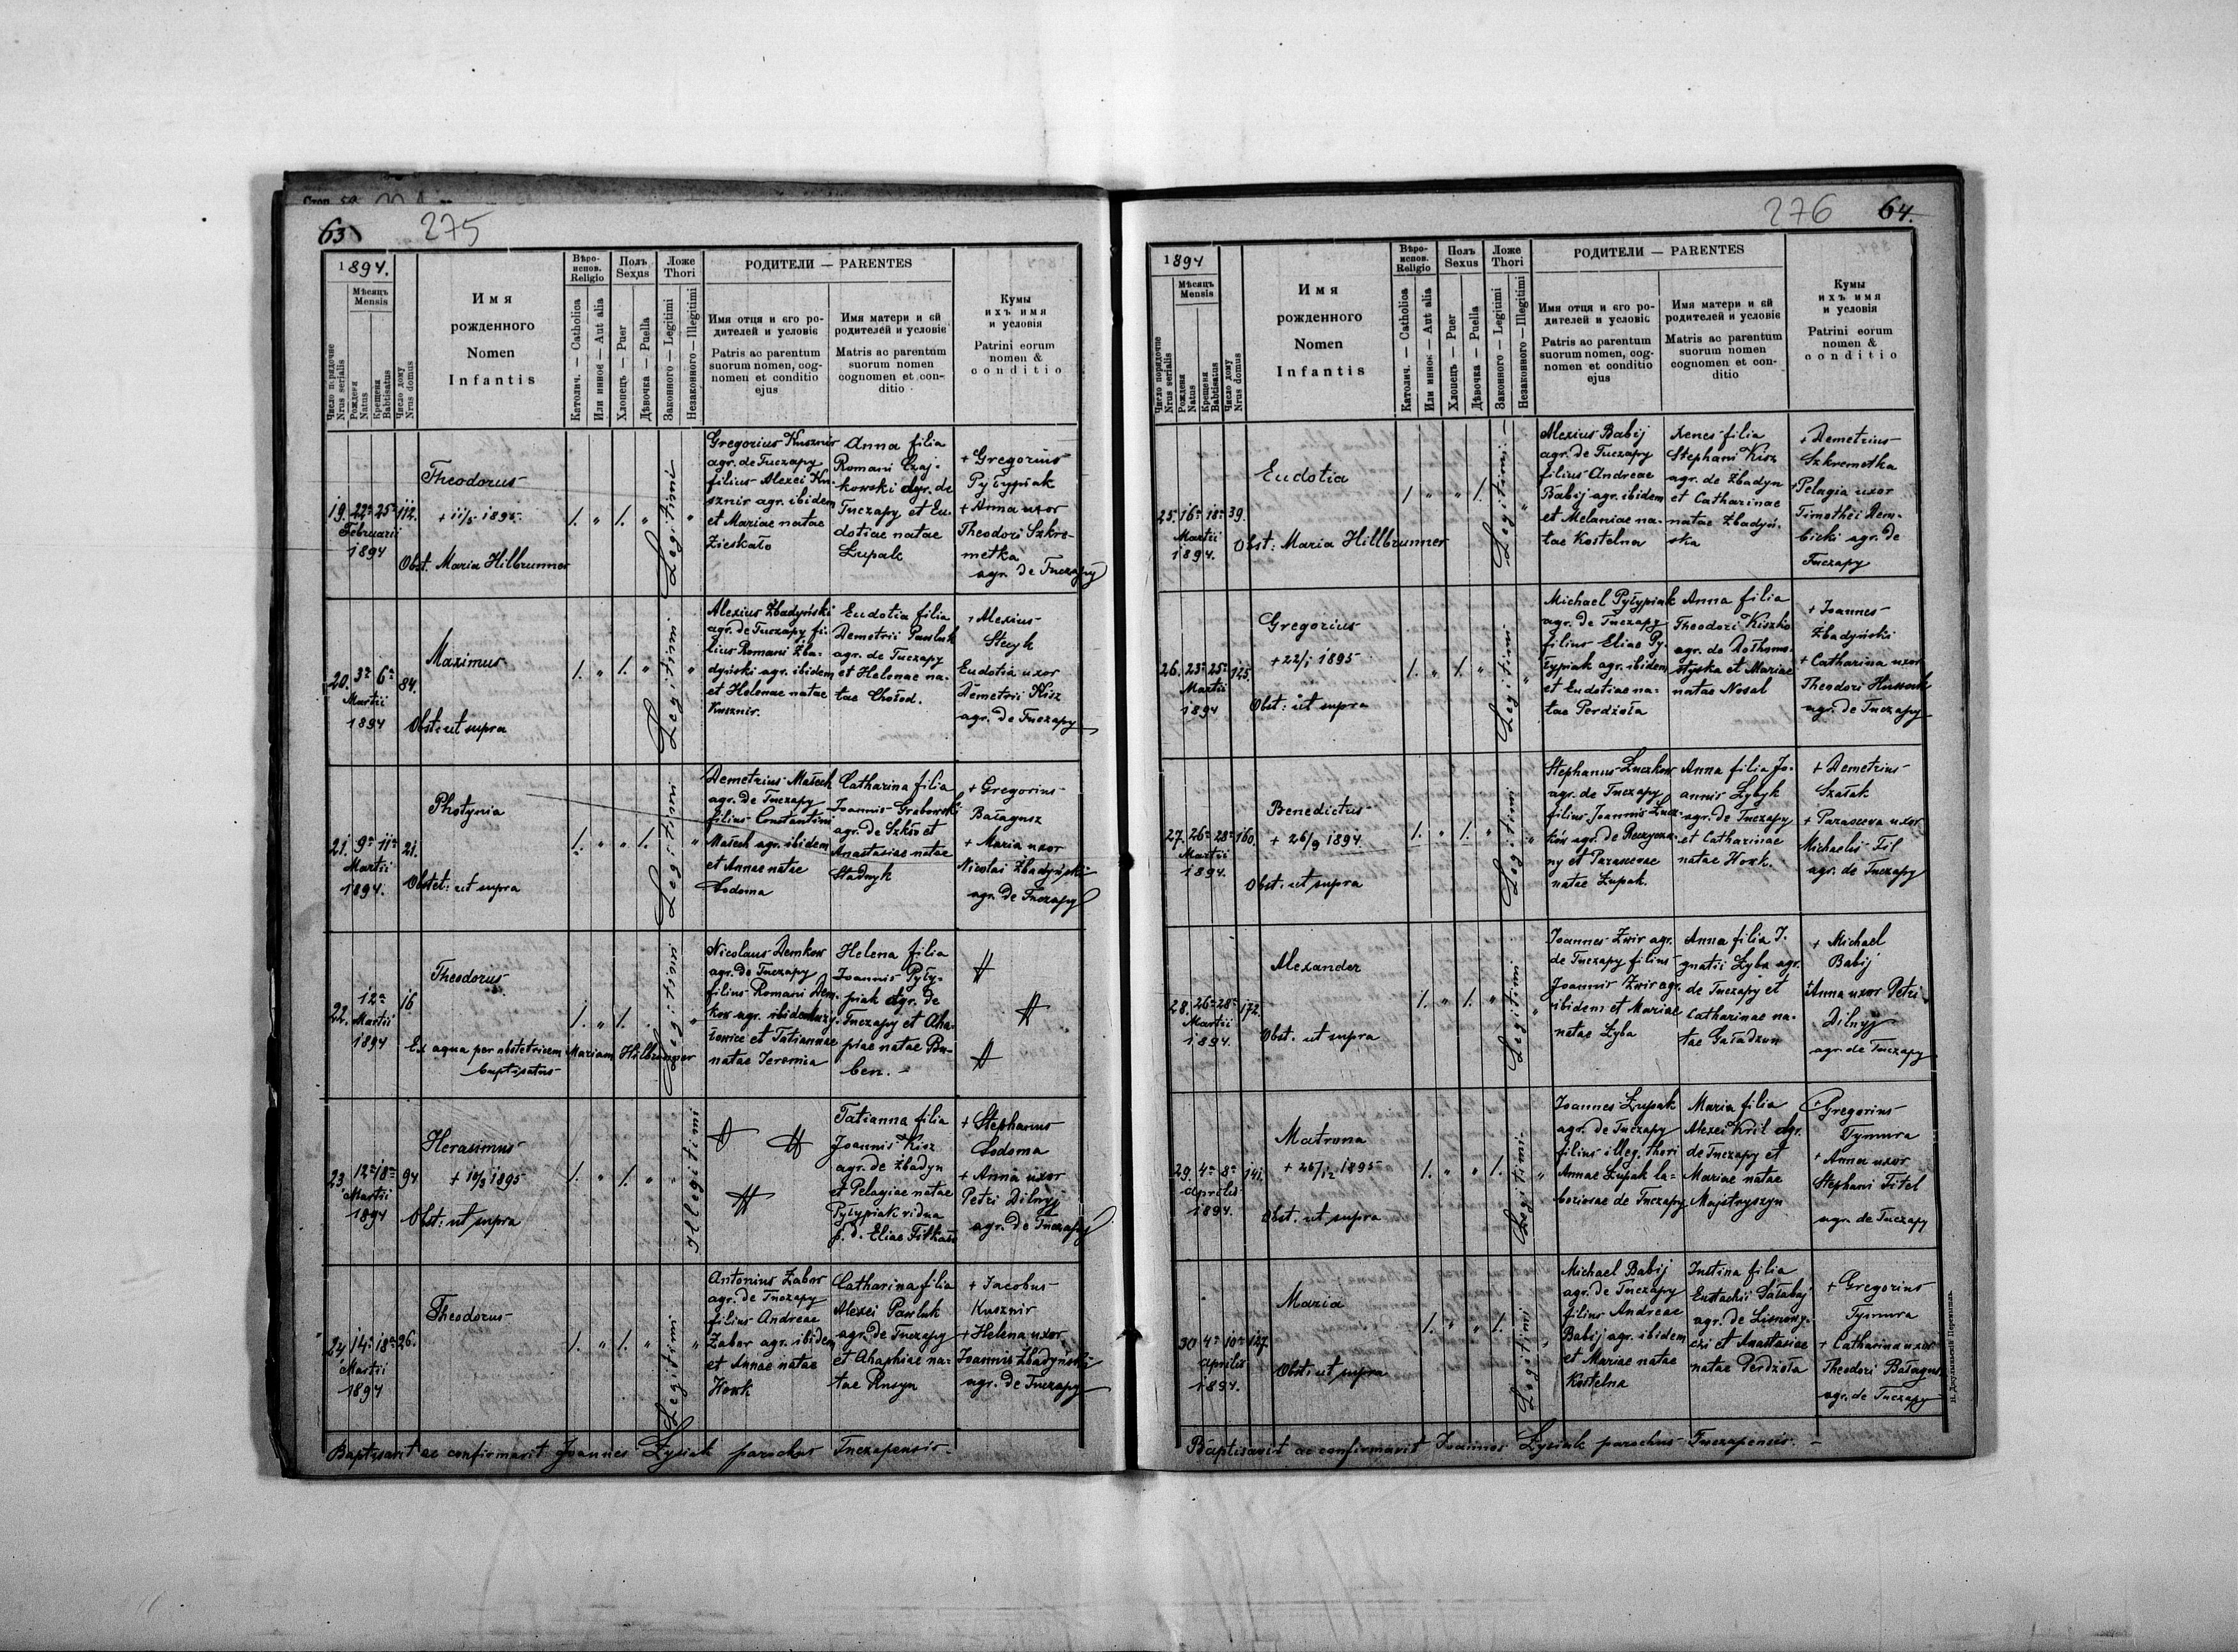 63
275
1894.
Мѣсяцъ
Mensis
Число порядочне
Nrus serialis
Рожденя
Natus
Крещеня
Babtisatus
Число дому
Nrus domus
Имя
рожденного
Nomen
Infantis
Вѣро-
испов.
Religio
Католич. — Catholica
Или инное — Aut alia
Полъ
Sexus
Хлопець — Puer
Дѣвочка — Puella
Ложе
Thori
Законного — Legitimi
Незаконного — Illegitimi
РОДИТЕЛИ — PARENTES
Имя отця и его ро-
дителей и условіє
Patris ac parentum
suorum nomen, cog-
nomen et conditio
ejus
Имя матери и єй
родителей и условіє
Matris ac parentum
suorum nomen
cognomen et con-
ditio
Кумы
ихъ имя
и условія
Patrini eorum
nomen &
conditio
19. 22a 25a 112.
Februarii
1894
Theodorus
+ 11/5 1895
Obst. Maria Hilbrunner
1. " 1. "
Legitimi "
Gregorius Kusznir
agr. de Tuczapy
filius Alexei Ku-
sznir agr. ibidem
et Mariae natae
Zieskało
Anna filia
Romani Czaj-
kowski agr. de
Tuczapy et Eu-
dotiae natae
Łupak
+ Gregorius
Pyłypiak
+ Anna uxor
Theodori Szkro-
metka
agr. de Tuczapy
20. 3a 6a 84.
Martii
1894
Maximus
Obst: ut supra
1. " 1. "
Legitimi "
Alexius Zbadyński
agr. de Tuczapy fi-
lius Romani Zba-
dyński agr. ibidem
et Helenae natae
Kusznir.
Eudotia filia
Demetrii Pawluk
agr. de Tuczapy
et Helenae na-
tae Chołod.
+ Alexius
Stecyk
Eudotia uxor
Demetrii Kisz
agr. de Tuczapy
21. 9a 11a 21.
Martii
1894.
Photynia
Obstet: ut supra
1. " " 1.
Legitimi "
Demetrius Małech
agr. de Tuczapy
filius Constantini
Małech agr. ibidem
et Annae natae
Sodoma
Catharina filia
Joannis Grabowski
agr. de Szkło et
Anastasiae natae
Stadnyk
+ Gregorius
Bałagusz
+ Maria uxor
Nicolai Zbadyński
agr. de Tuczapy
22. 12a 16
Martii
1894
Theodorus
Ex aqua per obstetricem Mariam Hilbrunner
baptisatus
1. " 1.
Legitimi "
Nicolaus Demkow
agr. de Tuczapy
filius Romani Dem-
kow agr. ibidem
et Tatiannae
natae Jeromia
Helena filia
Joannis Pyły-
piak agr. de
Tuczapy et Aha-
piae natae Bu-
ben. –
23 12a 18a 94
Martii
1894
Herasimus
+ 10/3 1895
Obst: ut supra
1. " 1. "
" Illegitimi
Tatianna filia
Joannis Kisz
agr. de Zbadyn
et Pelagiae natae
Pyłypiak vidua
p. d. Eliae Fitkało
+ Stephanus
Sodoma
+ Anna uxor
Petri Dilnyj
agr. de Tuczapy
24 14a 18a 26.
Martii
1894
Theodorus
1. " 1. "
Legitimi "
Antonius Zabor
agr. de Tuczapy
filius Andreae
Zabor agr. ibidem
et Annae natae
Howk
Catharina filia
Alexei Pawluk
agr. de Tuczapy
et Ahaphiae na-
tae Rusyn
+ Jacobus
Kusznir
+ Helena uxor
Joannis Zbadyński
agr. de Tuczapy
Baptisavit ac confirmavit Joannes Łysiak parochus Tuczapensis
276
64.
1894
Мѣсяцъ
Mensis
Число порядочне
Nrus serialis
Рожденя
Natus
Крещеня
Babtisatus
Число дому
Nrus domus
Имя
рожденного
Nomen
Infantis
Вѣро-
испов.
Religio
Католич. — Catholica
Или инное — Aut alia
Полъ
Sexus
Хлопець — Puer
Дѣвочка — Puella
Ложе
Thori
Законного — Legitimi
Незаконного — Illegitimi
РОДИТЕЛИ — PARENTES
Имя отця и его ро-
дителей и условіє
Patris ac parentum
suorum nomen, cog-
nomen et conditio
ejus
Имя матери и єй
родителей и условіє
Matris ac parentum
suorum nomen
cognomen et con-
ditio
Кумы
ихъ имя
и условія
Patrini eorum
nomen &
conditio
25. 16a 18a 39.
Martii
1894.
Eudotia
Obst: Maria Hillbrunner
1 " " 1.
Legitimi "
Alexius Babij
agr. de Tuczapy
filius Andreae
Babij agr. ibidem
et Melaniae na-
tae Kostelna
Xenes filia
Stephani Kisz
agr. de Zbadyn
et Catharinae
natae Zbadyń-
ska
+ Demetrius
Szkremetka
+ Pelagia uxor
Timothei Dem-
bicki agr. de
Tuczapy
26. 23a 25a 125.
Martii
1894
Gregorius
+ 22/1 1895
Obst: ut supra
1. " 1. "
Legitimi "
Michael Pyłypiak
agr. de Tuczapy
filius Eliae Py-
łypiak agr. ibidem
et Eudotiae na-
tae Perdzoła
Anna filia
Theodori Kiszko
agr. de Dołhomo-
styska et Mariae
natae Nosal
+ Joannes
Zbadyński
+ Catharina uxor
Theodori Hussak
agr. de Tuczapy
27. 26a 28a 160.
Martii
1894.
Benedictus
+ 26/9 1894
Obst: ut supra
1. " 1. "
Legitimi "
Stephanus Łuczkow
agr. de Tuczapy
filius Joannis Łucz-
ków agr. de Reczycza-
ny et Parascevae
natae Łupak.
Anna filia Jo-
annis Łybyk
agr. de Tuczapy
et Catharinae
natae Howk.
+ Demetrius
Szałak
+ Parasceva uxor
Michaelis Fil
agr. de Tuczapy
28. 26a 28a 172.
Martii
1894.
Alexander
Obst. ut supra
1. " 1. "
Legitimi "
Joannes Zwir agr.
de Tuczapy filius
Joannis Zwir agr.
ibidem et Mariae
natae Łyba
Anna filia I-
gnatii Łyba agr.
de Tuczapy et
Catharinae na-
tae Gaładzun
+ Michael
Babij
+ Anna uxor Petri
Dilnyj
agr. de Tuczapy
29. 4a 8a 141.
Aprilis
1894.
Matrona
+ 26/12 1895
Obst. ut supra
1. " " 1.
Legitimi "
Joannes Łupak
agr. de Tuczapy
filius illeg. thori
Annae Łupak la-
boriosae de Tuczapy
Maria filia
Alexei Kril agr.
de Tuczapy et
Mariae natae
Majstryszyn
+ Gregorius
Tymura
+ Anna uxor
Stephani Fitel
agr. de Tuczapy
30 4a 10a 127.
Aprilis
1894.
Maria
Obst: ut supra
1. " " 1.
Legitimi "
Michael Babij
agr. de Tuczapy
filius Andreae
Babij agr. ibidem
et Mariae natae
Kostelna
Justina filia
Eustachii Pałabaj
agr. de Lisnowy-
czi et Anastasiae
natae Perdzoła
+ Gregorius
Tymura
+ Catharina uxor
Theodori Bałagusz
agr. de Tuczapy
Baptisavit ac confirmavit Joannes Łysiak parochus Tuczapensis. –